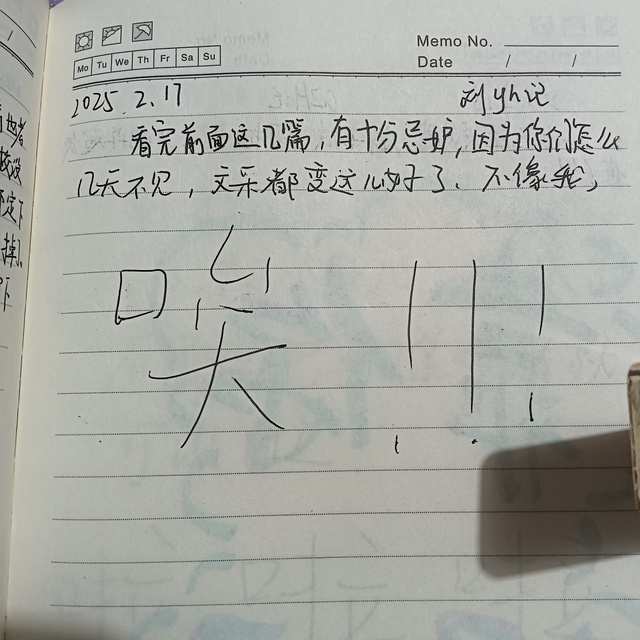 Memo No.
Mo Tu We Th Fr Sa Su
Date / /
2025.2.17 刘yh记
看完前面这几篇,有十分忌妒,因为你们怎么
几天不见,文采都变这么好了、不像我,
唉!!!